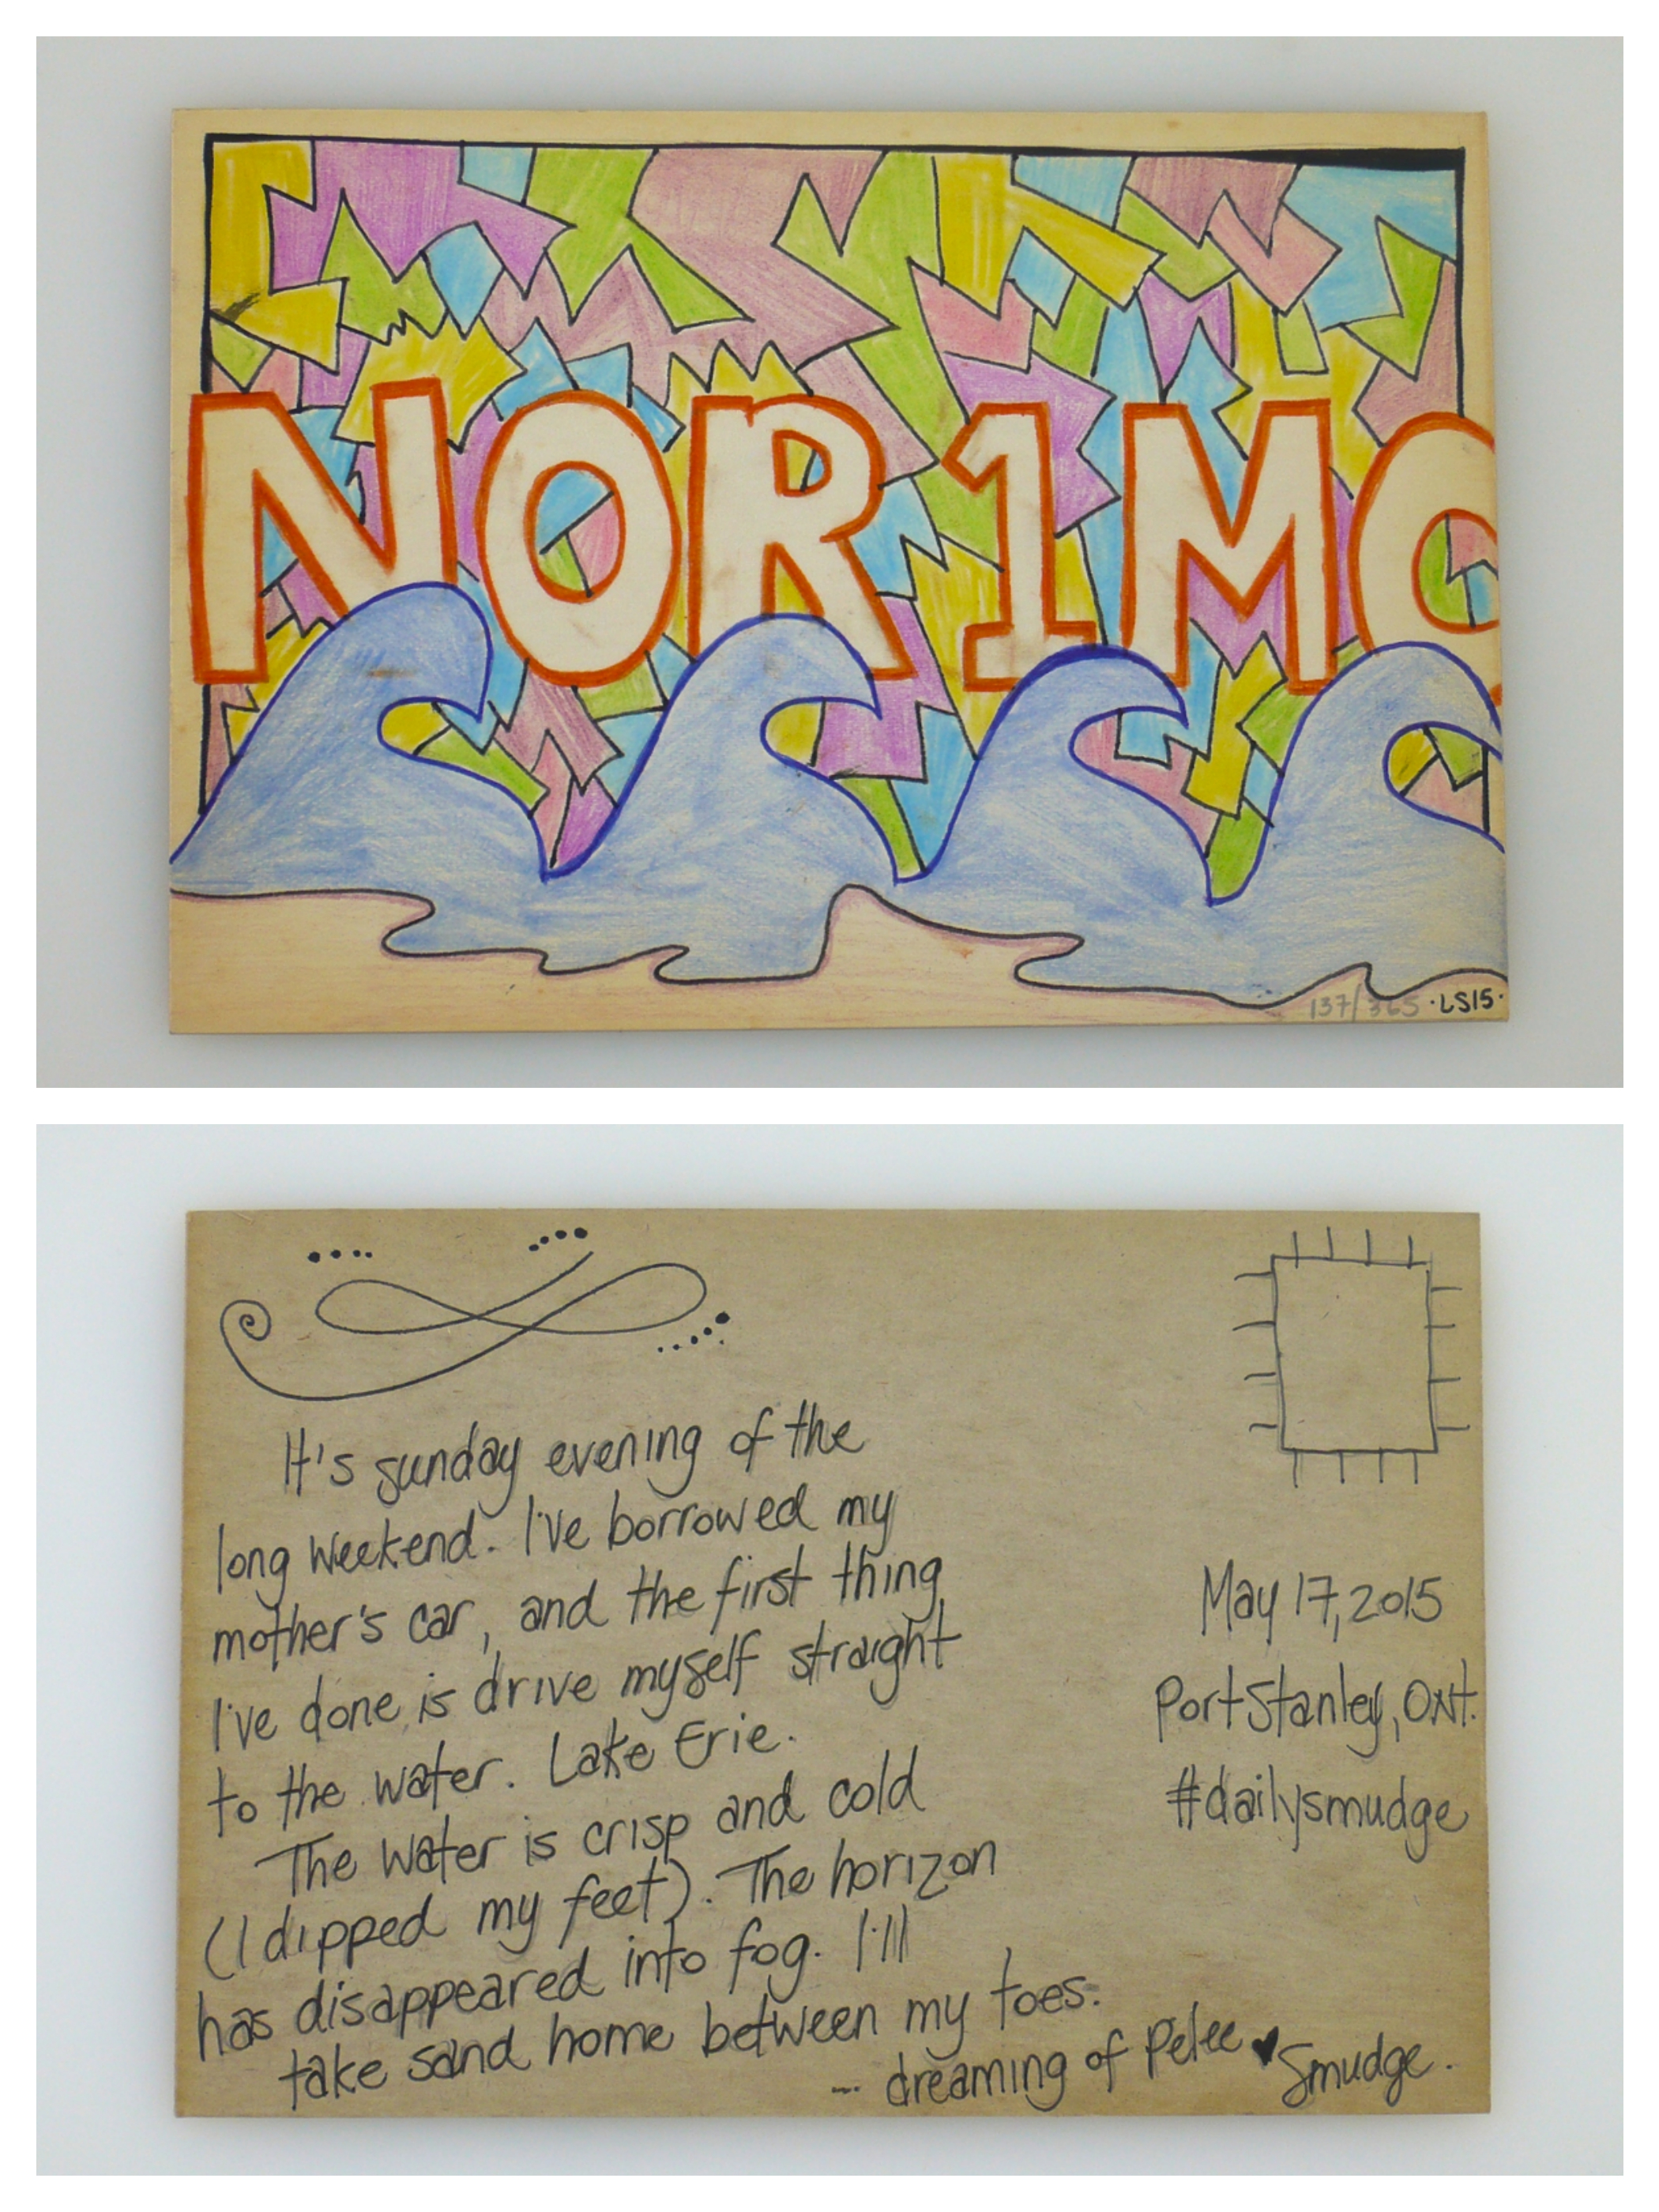 NOR1MO
137/365 ·LS15·
It's sunday evening of the
long weekend. I've borrowed my
mother's car, and the first thing
I've done is drive myself straight
to the water. Lake Erie.
The water is crisp and cold
(I dipped my feet). The horizon
has disappeared into fog. I'll
take sand home between my toes.
--- dreaming of Pelee ♥ Smudge.
May 17, 2015
Port Stanley, Ont.
#dailysmudge